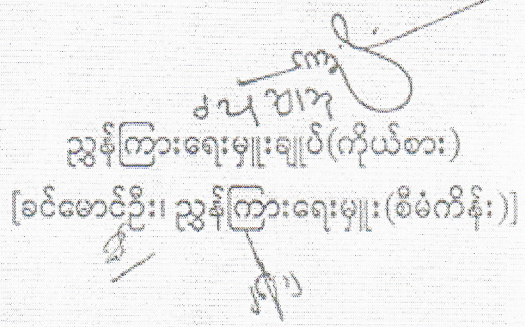 ညွှန်ကြားရေးမှူးချုပ်(ကိုယ်စား)
[ခင်မောင်ဦး၊ ညွှန်ကြားရေးမှူး(စီမံကိန်း)]